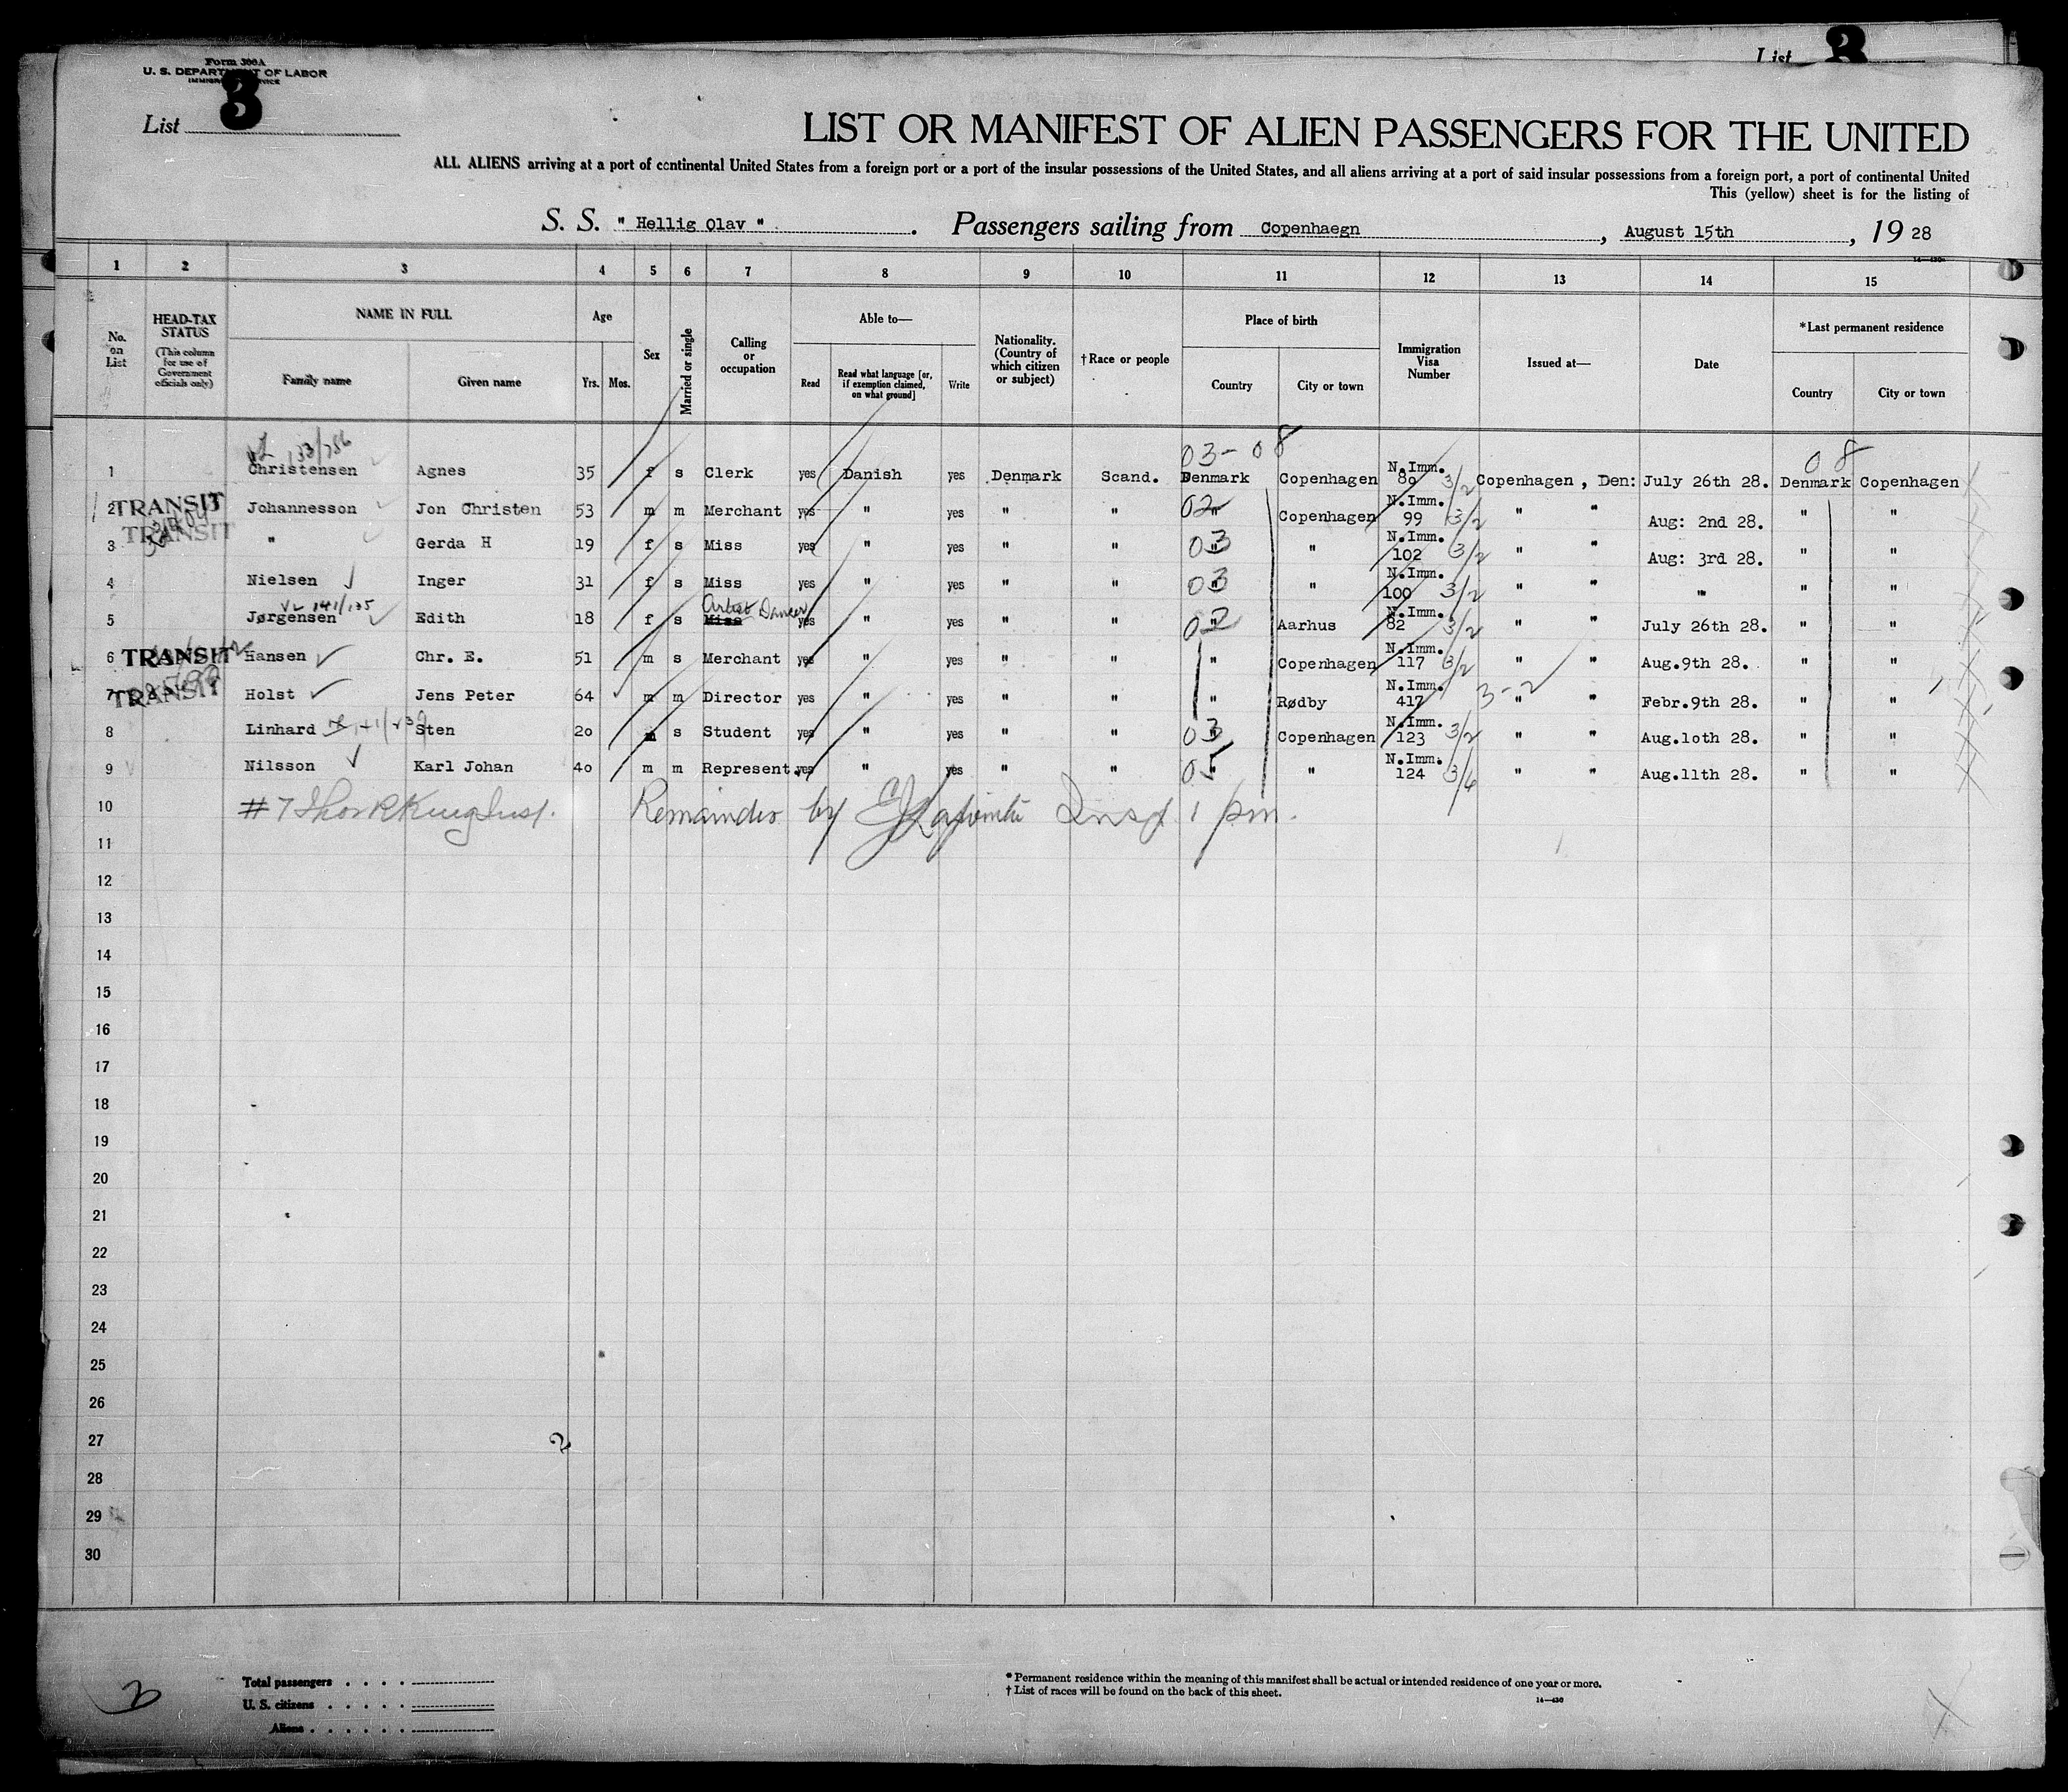 List 3
Form 500A
U. S. DEPARTMENT OF LABOR
IMMIGRATION SERVICE
List 3
LIST OR MANIFEST OF ALIEN PASSENGERS FOR THE UNITED
ALL ALIENS arriving at a port of continental United States from a foreign port or a port of the insular possessions of the United States, and all aliens arriving at a port of said insular possessions from a foreign port, a port of continental United
This (yellow) sheet is for the listing of
S. S. " Hellig Olav " . Passengers sailing from Copenhaegn , August 15th , 19 28
1 2 3 4 5 6 7 8 9 10 11 12 13 14 15
No. on List
HEAD-TAX STATUS
(This column for use of Government officials only)
NAME IN FULL
Family name Given name
Age
Yrs. Mos.
Sex
Married or single
Calling or occupation
Able to—
Read
Read what language [or, if exemption claimed, on what ground]
Write
Nationality. (Country of which citizen or subject)
†Race or people
Place of birth
Country City or town
Immigration Visa Number
Issued at—
Date
*Last permanent residence
Country City or town
133/756 03-08 08
1 Christensen Agnes 35 f s Clerk yes Danish yes Denmark Scand. Denmark Copenhagen N.Imm. 89 3/2 Copenhagen, Den: July 26th 28. Denmark Copenhagen
2 TRANSIT Johannesson Jon Christen 53 m m Merchant yes " yes " " 02 " Copenhagen N.Imm. 99 3/2 " " Aug: 2nd 28. " "
TRANSIT
3 " Gerda H 19 f s Miss yes " yes " " 03 " " N.Imm. 102 3/2 " " Aug: 3rd 28. " "
4 Nielsen Inger 31 f s Miss yes " yes " " 03 " " N.Imm. 100 3/2 " " " " "
141/135 Artist Dancer
5 Jørgensen Edith 18 f s Miss yes " yes " " 02 " Aarhus N.Imm. 82 3/2 " " July 26th 28. " "
6 TRANSIT Hansen Chr. E. 51 m s Merchant yes " yes " " " Copenhagen N.Imm. 117 3/2 " " Aug.9th 28. " "
7 TRANSIT Holst Jens Peter 64 m m Director yes " yes " " " Rødby N.Imm. 417 3-2 " " Febr.9th 28. " "
8 Linhard Sten 20 m s Student yes " yes " " 03 " Copenhagen N.Imm. 123 3/2 " " Aug.10th 28. " "
9 Nilsson Karl Johan 40 m m Represent. yes " yes " " 05 " " N.Imm. 124 3/6 " " Aug.11th 28. " "
10 #7 King Insp. Remainder by Insp 1 pm.
11
12
13
14
15
16
17
18
19
20
21
22
23
24
25
26
27
28
29
30
Total passengers
U. S. citizens
Aliens
* Permanent residence within the meaning of this manifest shall be actual or intended residence of one year or more.
† List of races will be found on the back of this sheet.